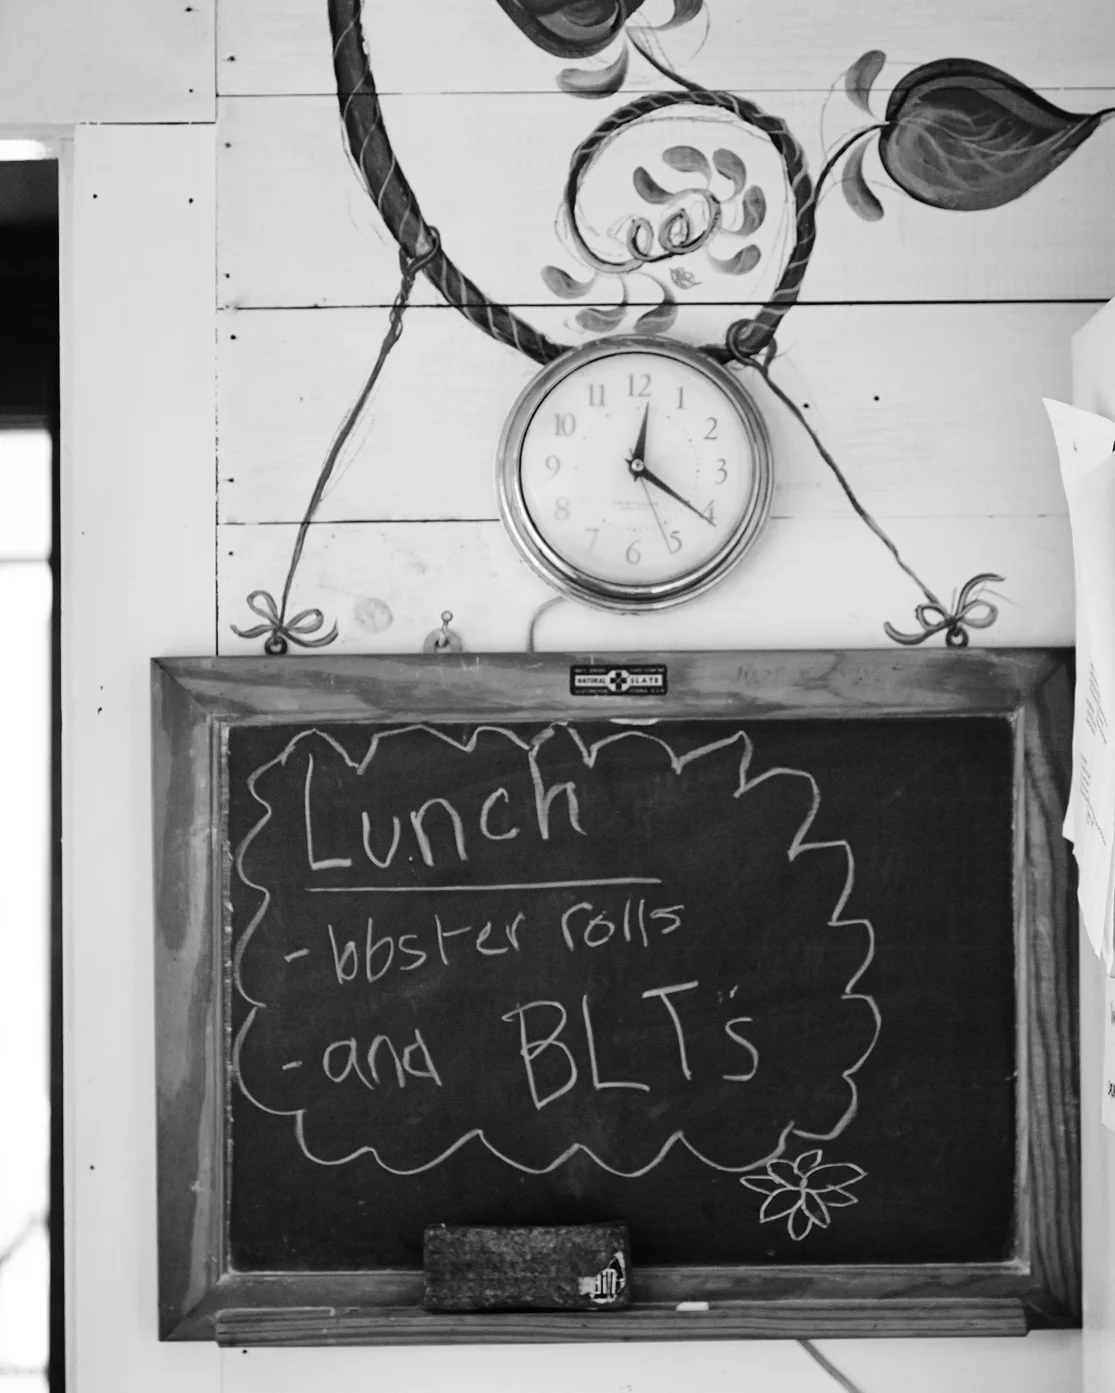 12
11 1
10 2
9 3
8 4
7 5
6
NATURAL SLATE
Lunch
- lobster rolls
- and BLT's